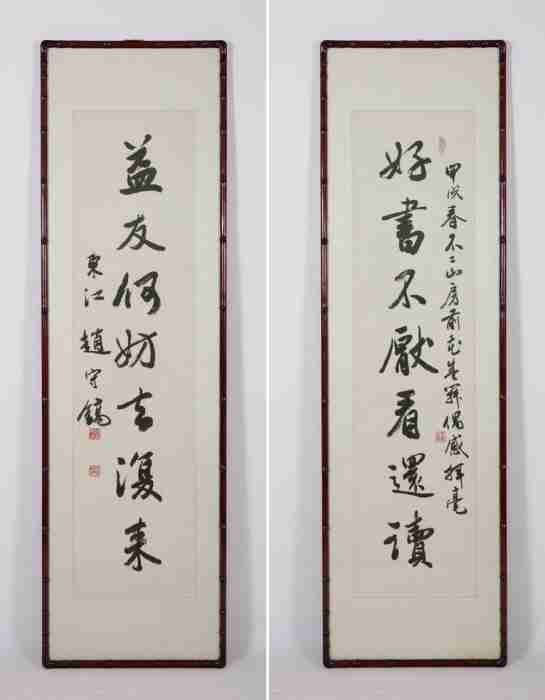 好書不厭看還讀
甲戌春不二山房前花盛舞偶感揮毫
益友何妨去復來
東江趙守鎬